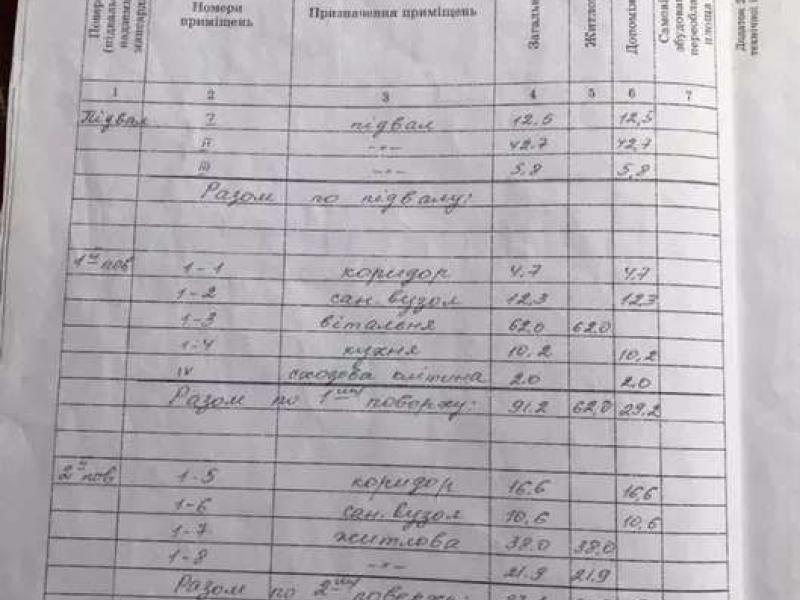 Номери приміщень Призначення приміщень Загальн Житлов Допоміж
1 2 3 4 5 6 7
Підвал I підвал 12.5 12,5
II -"- 42.7 42,7
III -"- 5,8 5,8
Разом по підвалу:
1й пов 1-1 коридор 4.7 4,7
1-2 сан. вузол 12,3 12,3
1-3 вітальня 62.0 62,0
1-4 кухня 10,2 10,2
IV сходова клітина 2.0 2.0
Разом по 1му поверху: 91.2 62,0 29.2
2й пов 1-5 коридор 16.6 16,6
1-6 сан. вузол 10,6 10,6
1-7 житлова 38.0 38,0
1-8 -"- 21.9 21,9
Разом по 2му поверху: